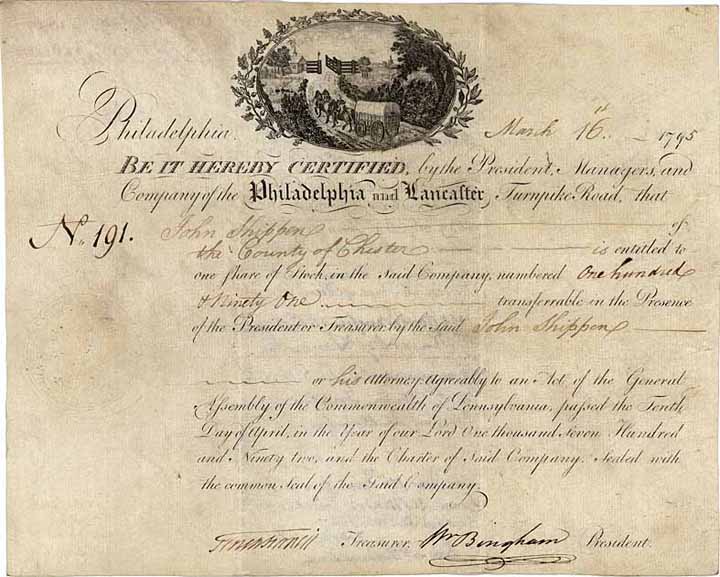 Philadelphia, March 16 1795
BE IT HEREBY CERTIFIED, by the President, Managers, and
Company of the Philadelphia and Lancaster Turnpike Road, that
No. 191. John Shippen of
the County of Chester is entitled to
one share of Stock, in the Said Company, numbered One hundred
& Ninety One transferrable in the Presence
of the President or Treasurer by the said John Shippen
or his Attorney, Agreeably to an Act of the General
Assembly of the Commonwealth of Pennsylvania, passed the Tenth
Day of April, in the Year of our Lord One thousand seven Hundred
and Ninety two, and the Charter of Said Company. Sealed with
the common Seal of the Said Company.
Treasurer. Wm Bingham President.